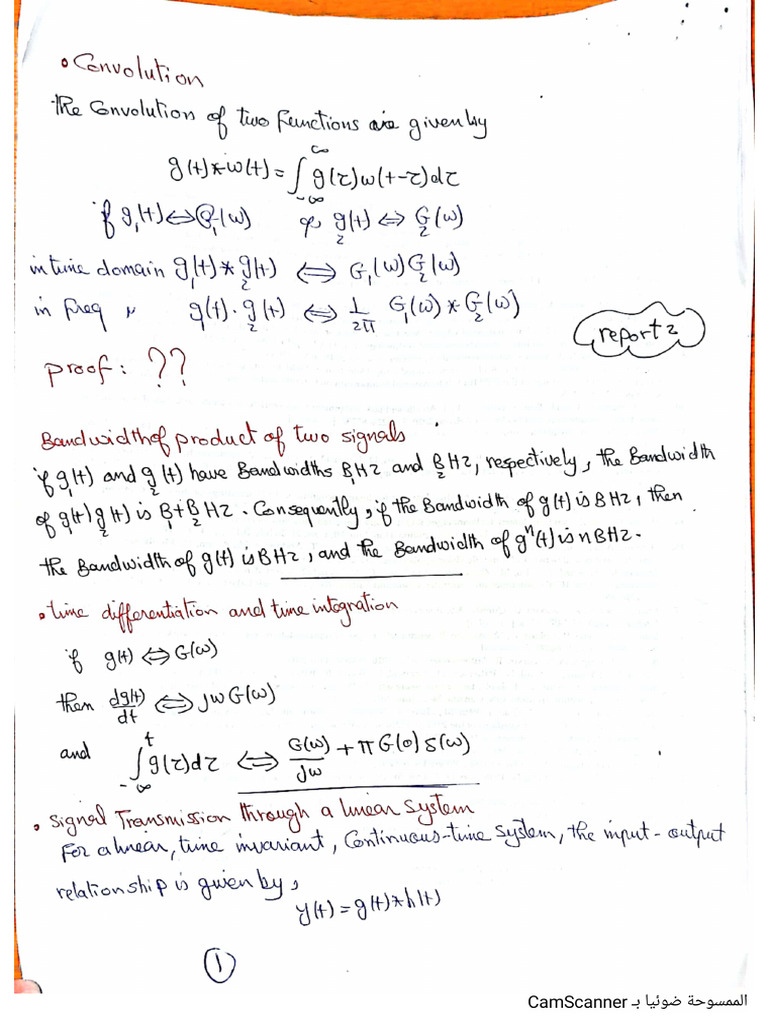 • Convolution
the Convolution of two functions are given by
g(t)*w(t) = ∫_{-∞}^{∞} g(τ)w(t-τ)dτ
if g₁(t) ⇔ G₁(w) & g₂(t) ⇔ G₂(w)
in time domain g₁(t) * g₂(t) ⇔ G₁(w)G₂(w)
in freq 〃 g₁(t) . g₂(t) ⇔ 1/2π G₁(w) * G₂(w)
report 2
proof : ??
Bandwidth of product of two signals
if g₁(t) and g₂(t) have Bandwidths B₁Hz and B₂Hz, respectively, the Bandwidth
of g₁(t)g₂(t) is B₁+B₂ Hz. Consequently, if the Bandwidth of g(t) is B Hz, then
the Bandwidth of g(t) is B Hz, and the Bandwidth of gⁿ(t) is nBHz.
• time differentiation and time integration
if g(t) ⇔ G(w)
then dg(t)/dt ⇔ jwG(w)
and ∫_{-∞}^{t} g(τ)dτ ⇔ G(w)/jw + πG(0)δ(w)
• Signal Transmission through a linear System
For a linear, time invariant, Continuous-time System, the input-output
relationship is given by,
y(t) = g(t)*h(t)
1
الممسوحة ضوئيا بـ CamScanner